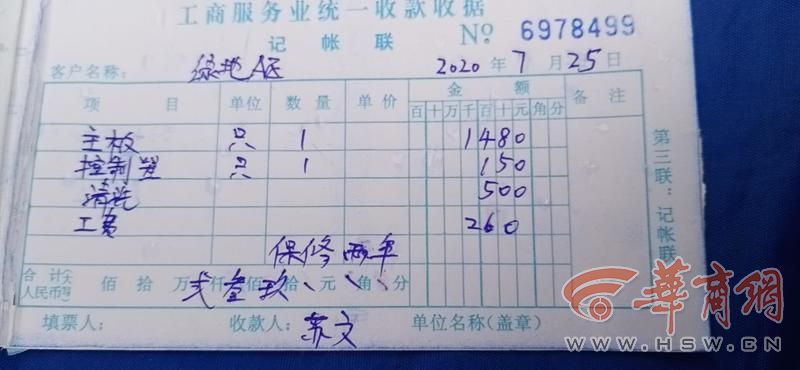 工商服务业统一收款收据
记帐联 № 6978499
客户名称： 绿地A区 2020年7月25日
项目 单位 数量 单价 金额 备注
百十万千百十元角分
主板 只 1 1480
控制器 只 1 150
清洗 500
工费 260
保修两年
合计 人民币 佰 拾 万 仟 佰 拾 元 角 分
贰叁玖
填票人： 收款人： 苏文 单位名称（盖章）
第三联：记帐联
华商网
WWW.HSW.CN